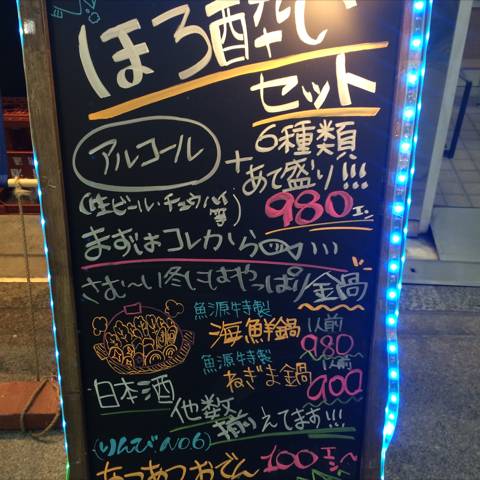 ほろ酔い
セット
アルコール
(生ビール・チュウハイ等)
+
6種類
あて盛り!!!
980エン
まずはコレから…
さむ〜い冬にはやっぱり
金鍋
魚源特製
海鮮鍋
1人前
980
魚源特製
ねぎま鍋
1人前
900
日本酒
他数
揃えてます!!!
(りんびNO.6)
あつあつおでん
100エン〜